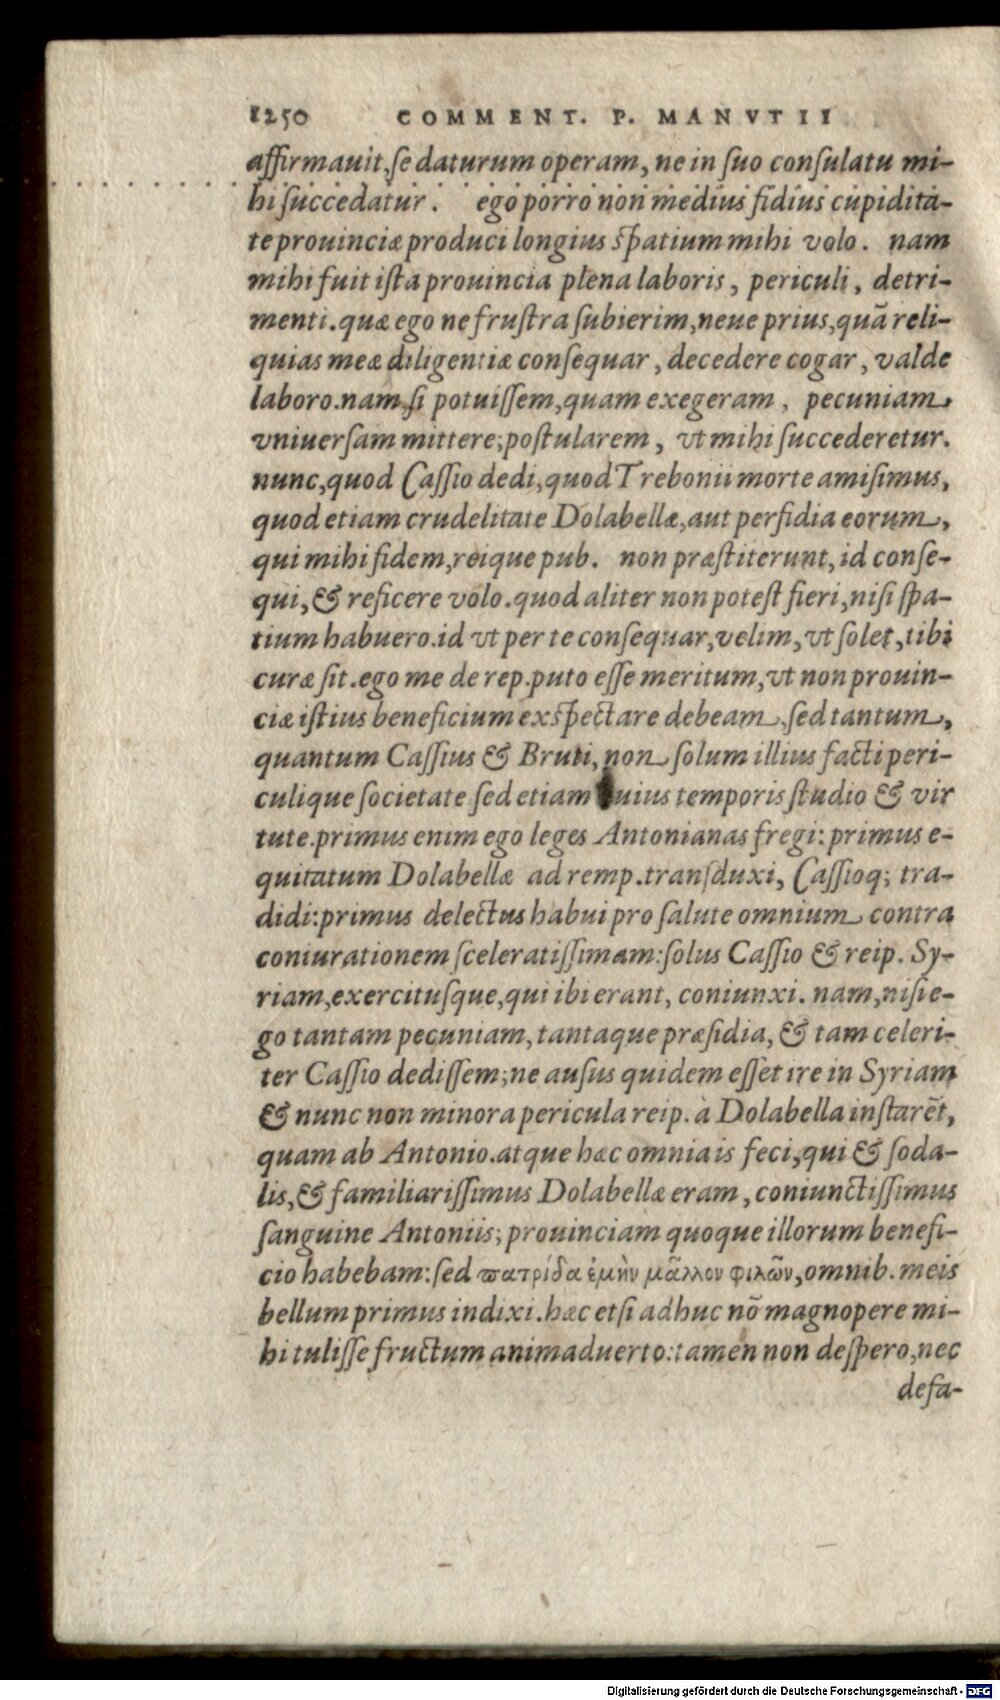 1250 COMMENT. P. MANVTII
affirmauit, se daturum operam, ne in suo consulatu mi-
hi succedatur. ego porro non medius fidius cupidita-
te prouinciæ produci longius spatium mihi volo. nam
mihi fuit ista prouincia plena laboris, periculi, detri-
menti. quæ ego ne frustra subierim, neue prius, quã reli-
quias meæ diligentiæ consequar, decedere cogar, valde
laboro. nam si potuissem, quam exegeram, pecuniam
vniuersam mittere; postularem, vt mihi succederetur.
nunc, quod Cassio dedi, quod Trebonii morte amisimus,
quod etiam crudelitate Dolabellæ, aut perfidia eorum,
qui mihi fidem, reique pub. non præstiterunt, id conse-
qui, & reficere volo. quod aliter non potest fieri, nisi spa-
tium habuero. id vt per te consequar, velim, vt solet, tibi
curæ sit. ego me de rep. puto esse meritum, vt non prouin-
ciæ istius beneficium exspectare debeam, sed tantum,
quantum Cassius & Bruti, non solum illius facti peri-
culique societate sed etiam huius temporis studio & vir
tute. primus enim ego leges Antonianas fregi: primus e-
quitatum Dolabellæ ad remp. transduxi, Cassioq; tra-
didi: primus delectus habui pro salute omnium contra
coniurationem sceleratissimam: solus Cassio & reip. Sy-
riam, exercitusque, qui ibi erant, coniunxi. nam, nisi e-
go tantam pecuniam, tantaque præsidia, & tam celeri-
ter Cassio dedissem; ne ausus quidem esset ire in Syriam
& nunc non minora pericula reip. à Dolabella instarẽt,
quam ab Antonio. atque hæc omnia is feci, qui & soda-
lis, & familiarissimus Dolabellæ eram, coniunctissimus
sanguine Antoniis; prouinciam quoque illorum benefi-
cio habebam: sed πατρίδα ἐμὴν μᾶλλον φιλῶν, omnib. meis
bellum primus indixi. hæc etsi adhuc nõ magnopere mi-
hi tulisse fructum animaduerto: tamen non despero, nec
defa-
Digitalisierung gefördert durch die Deutsche Forschungsgemeinschaft - DFG